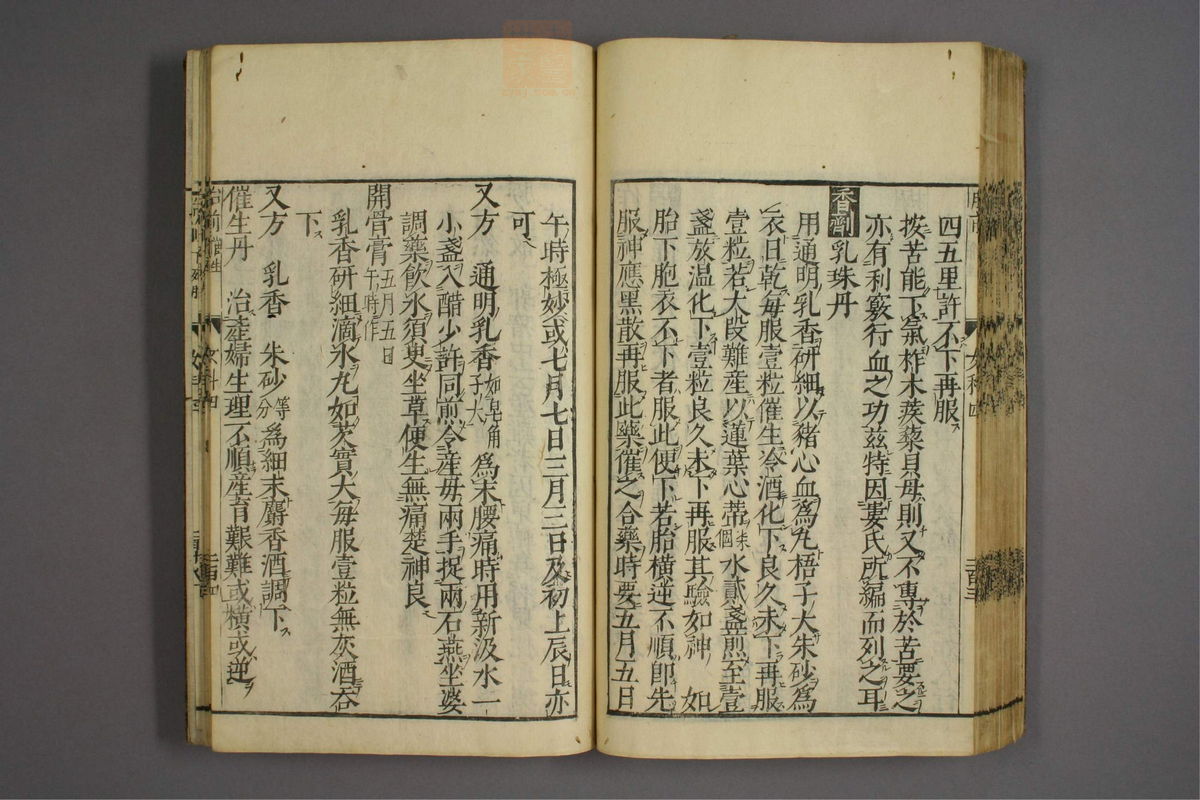 四五里許不下再服
按苦能下氣柞木蒺蔾貝母則又不專於苦要之
亦有利竅行血之功兹特因婁氏所編而列之耳
香劑乳珠丹
用通明乳香研細以豬心血爲丸梧子大朱砂爲
衣日乾每服壹粒催生冷酒化下良久未下再服
壹粒若大段難産以蓮葉心蒂 水貳盞煎至壹
盞放温化下壹粒良久未下再服其驗如神 如
胎下胞衣不下者服此便下若胎橫逆不順即先
服神應黑散再服此藥催之合藥時要五月五日
午時極妙或七月七日三月三日及初上辰日亦
可
又方 通明乳香子大如皂角爲末腰痛時用新汲水一
小盞入醋少許同煎令産母兩手捉兩石燕坐婆
調藥飲水須臾坐草便生無痛楚神良
開骨膏五月五日午時作
乳香研細滴水丸如芡實大每服壹粒無灰酒吞
下
又方 乳香 朱砂等分爲細末麝香酒調下
催生丹 治產婦生理不順産育艱難或横或逆
胎前催生
女科四